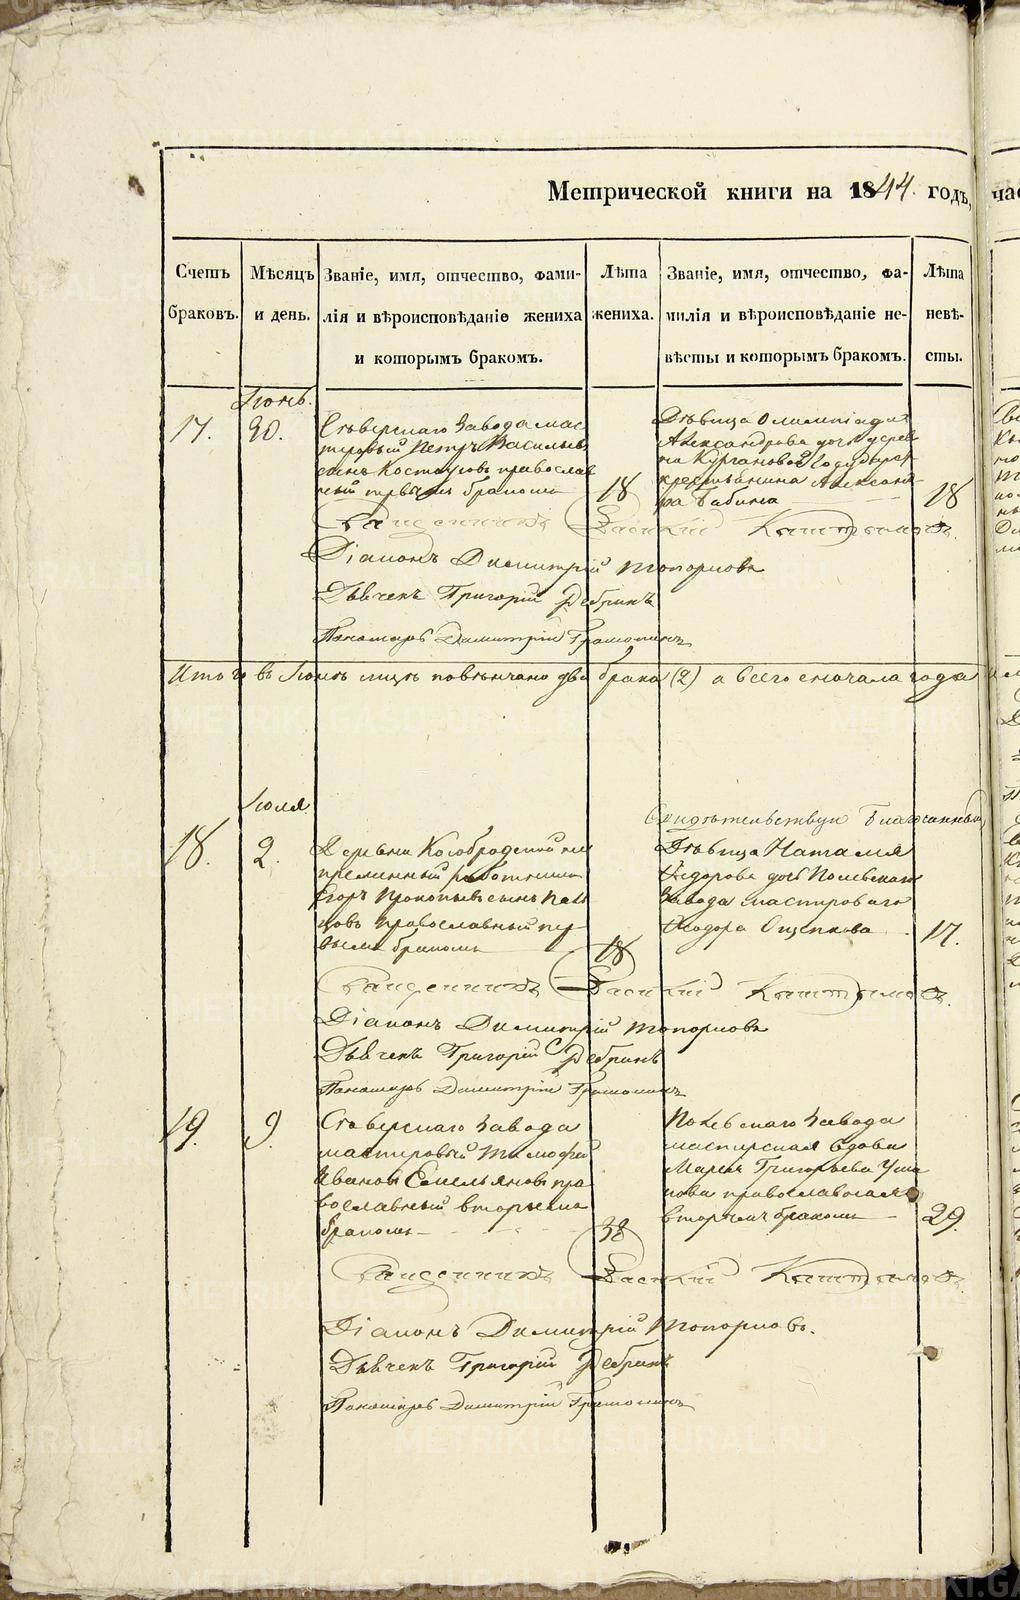 Метрической книги на 1844. годъ,
Счетъ браковъ.
Мѣсяцъ и день.
Званіе, имя, отчество, фами-
лія и вѣроисповѣданіе жениха
и которымъ бракомъ.
Лѣта жениха.
Званіе, имя, отчество, фа-
милія и вѣроисповѣданіе не-
вѣсты и которымъ бракомъ.
Лѣта невѣ-
сты.
Іюнь.
17.
30.
Сѣверскаго Завода мас
теровый Петръ Васильевъ
сынъ Костоусовъ православ
ный первымъ бракомъ
18
Дѣвица Олимпіада
Александрова дочь дерев
ни Кургановой Государст
крестьянина Александ
ра Бабина
18
Священникъ Василій Кыштымовъ.
Діаконъ Димитрій Топорковъ
Дьячекъ Григорій Ребринъ
Пономарь Димитрій
Итого въ Іюнѣ мцѣ повѣнчано два брака (2) а всего сначала года
Іюля
Свидѣтельствую Благочинный
18.
2.
Деревни Кособродской не
пременный работникъ
Егоръ Прокопьевъ сынъ
цовъ православный пер
вымъ бракомъ
18
Дѣвица Наталія
Ѳедорова дочь Полевскаго
Завода мастероваго
Ѳеодора Ощепкова
17.
Священникъ Василій Кыштымовъ.
Діаконъ Димитрій Топорковъ
Дьячекъ Григорій Ребринъ
Пономарь Димитрій
19.
9.
Сѣверскаго Завода
мастеровый Тимофей
Ивановъ Емельяновъ пра
вославный вторымъ
бракомъ
38
Полевскаго Завода
мастерская вдова
Марья Григорьева Уша
кова православная
вторымъ бракомъ
29.
Священникъ Василій Кыштымовъ.
Діаконъ Димитрій Топорковъ.
Дьячекъ Григорій Ребринъ
Пономарь Димитрій
METRIKI.GASO-URAL.RU